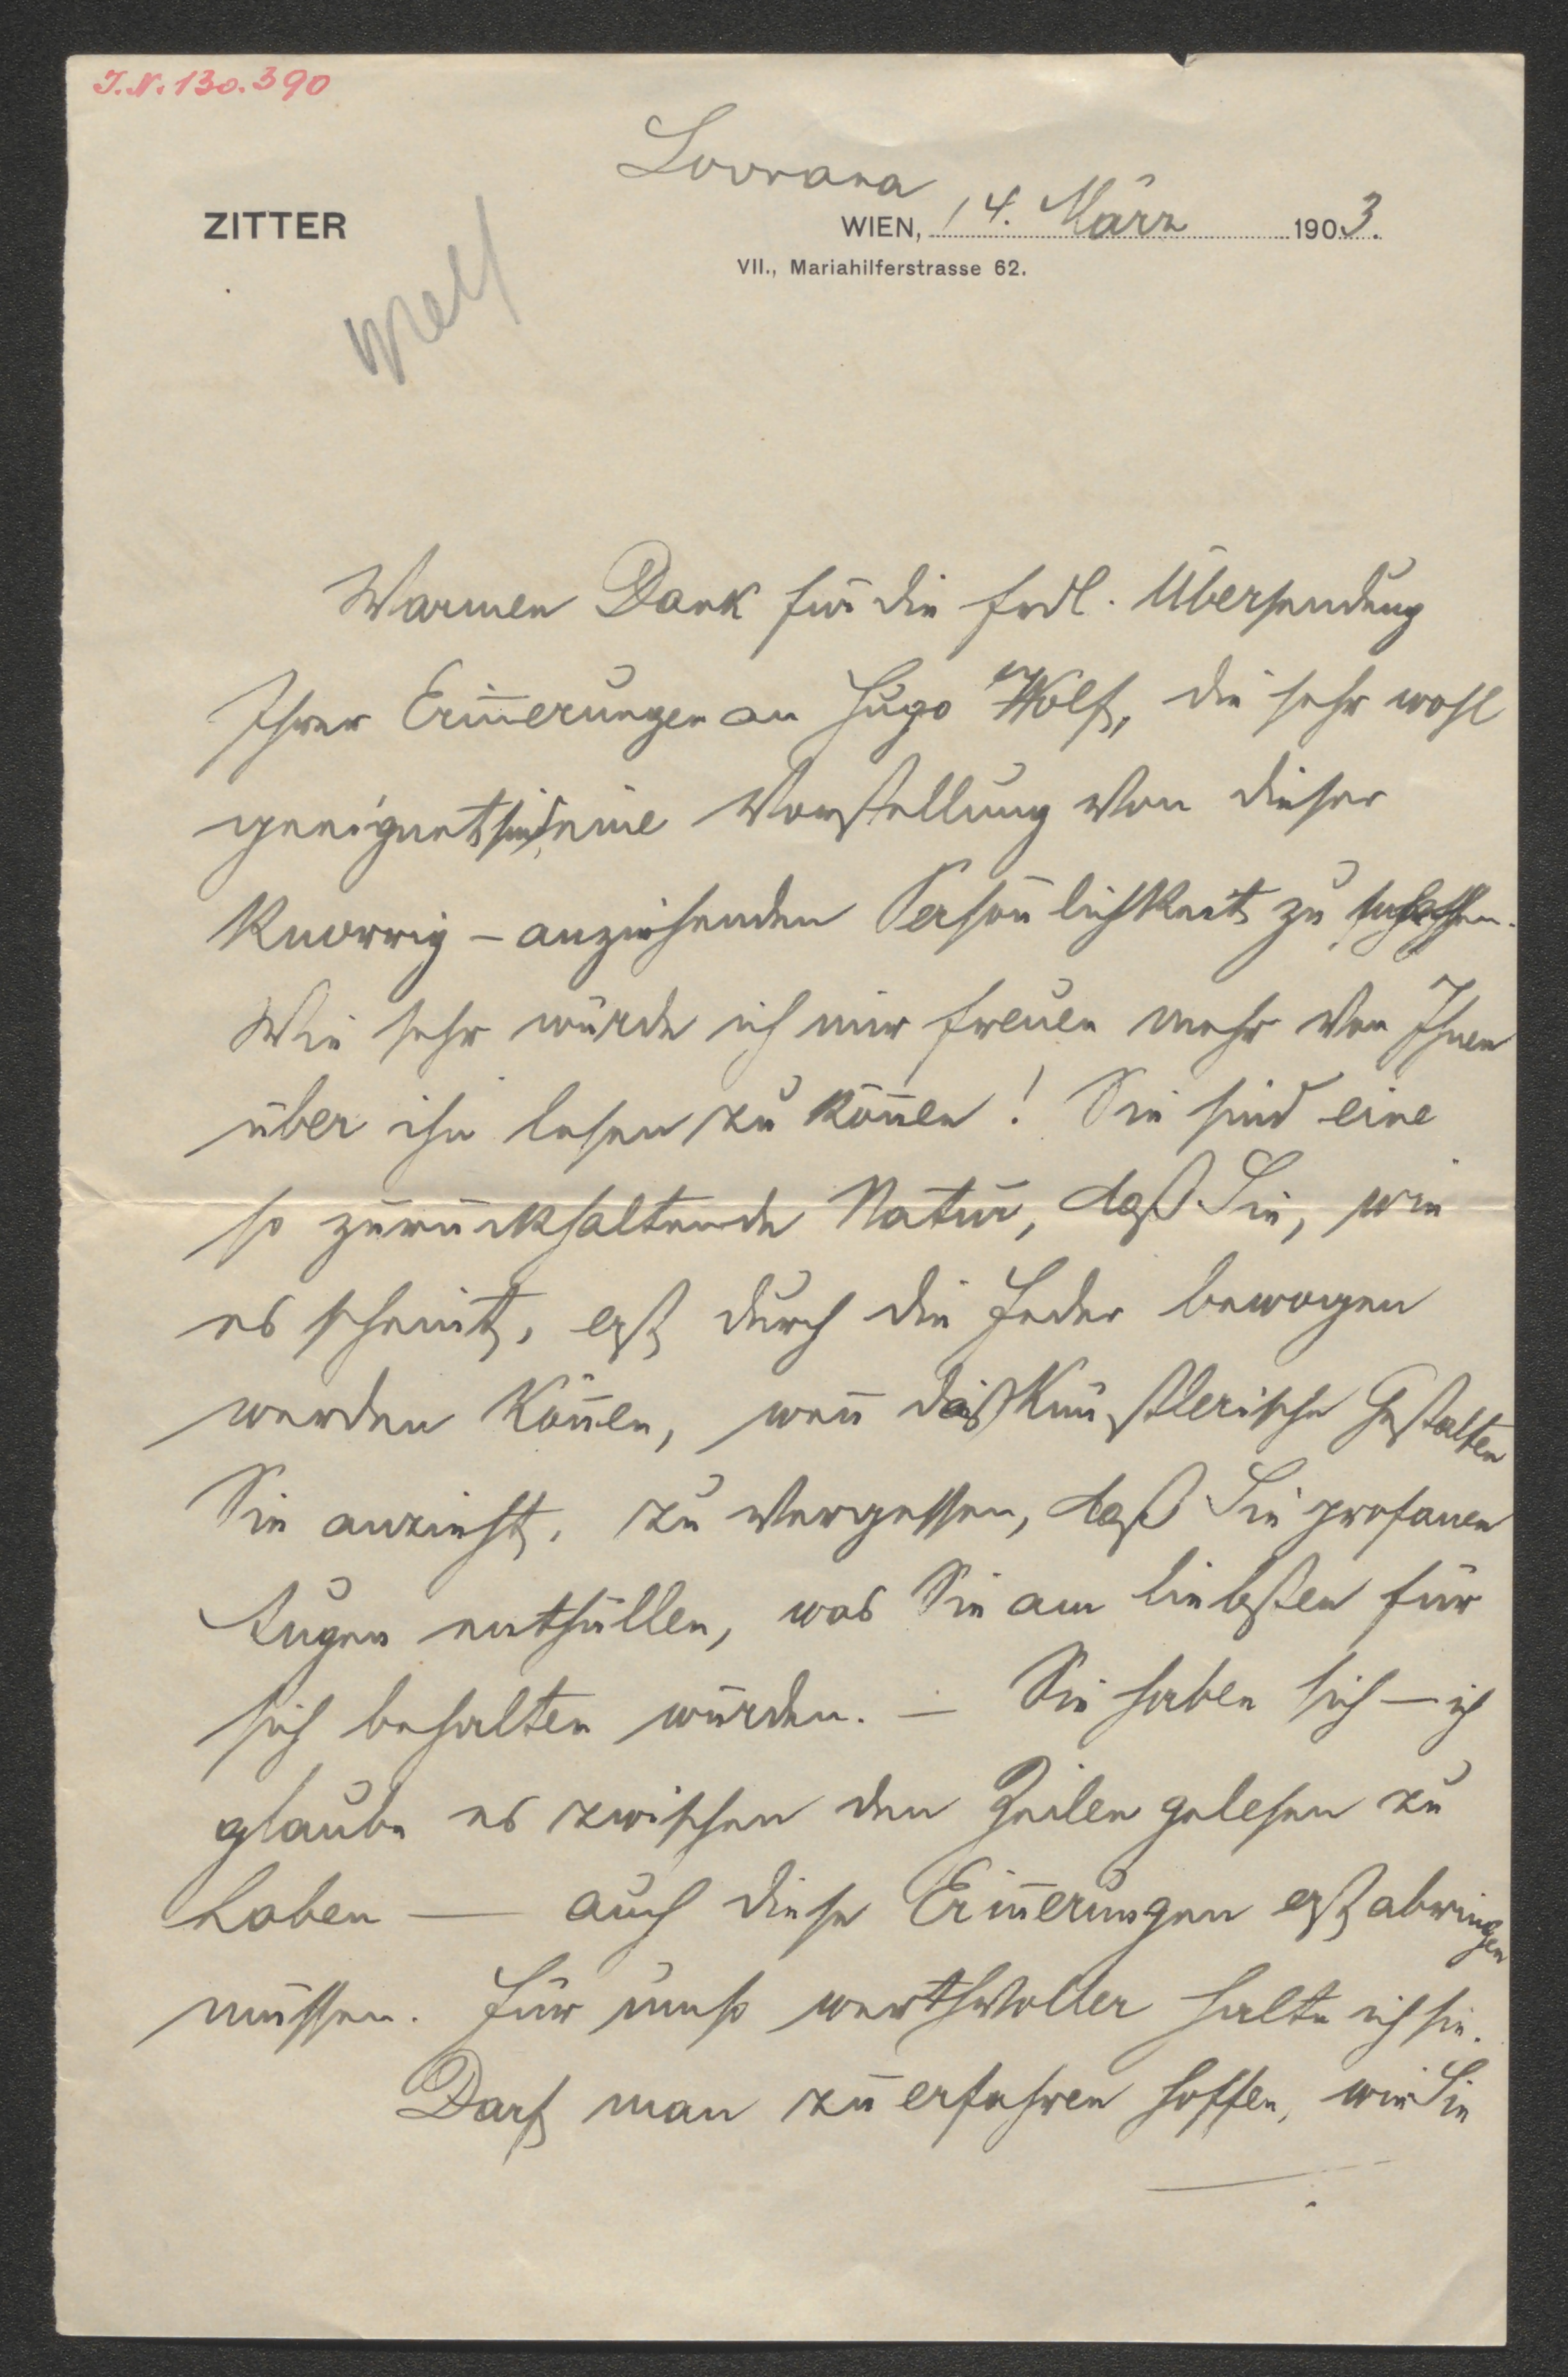 I.N. 130.390
Lovrana
ZITTER
WIEN, 14. März 1903.
VII., Mariahilferstrasse 62.
Warmen Dank für die frdl. Übersendung
Ihrer Erinnerungen an Hugo Wolf, die sehr wohl
geeignet sind, eine Vorstellung von dieser
knorrig-anziehenden Persönlichkeit zu schaffen.
Wie sehr würde ich mir freuen mehr von Ihnen
über ihn lesen zu können! Sie sind eine
so zurückhaltende Natur, daß Sie, wie
es scheint, erst durch die Feder bewogen
werden können, wenn das künstlerische Gestalten
Sie anzieht, zu vergessen, daß Sie profanen
Augen enthüllen, was Sie am liebsten für
sich behalten würden. — Sie haben sich — ich
glaube es zwischen den Zeilen gelesen zu
haben — auch diese Erinnerungen erst abringen
müssen. Für umso werthvoller halte ich sie.
Darf man zu erfahren hoffen, wie Sie